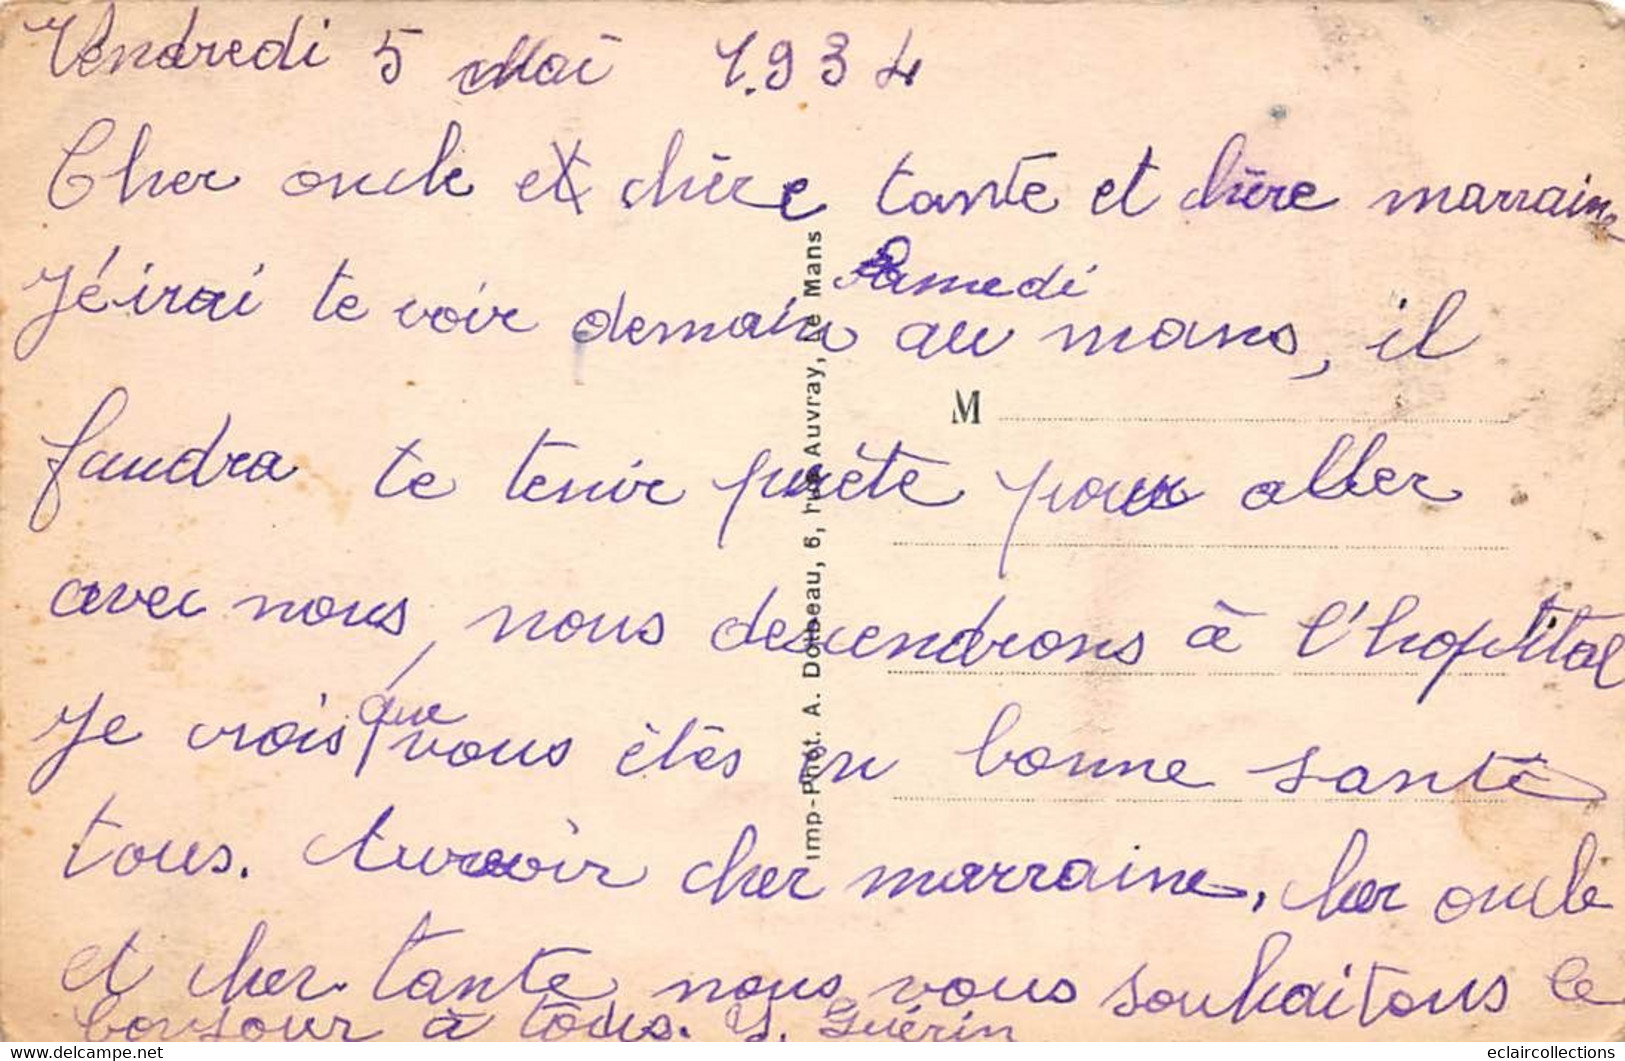 Vendredi 5 Mai 1.934
Cher oncle et chère tante et chère marraine
J'éirai te voir demain Samedi au mans, il
M
faudra te tenir prète pour aller
avec nous, nous descendrons à l'hopital
Je crois que vous êtes en bonne santé
tous. Aurevoir cher marraine, cher oncle
et cher tante nous vous souhaitons le
bonjour à tous. Y. Guérin
Imp-Phot. A. Dolbeau, 6, rue Auvray, Le Mans
eclaircollections